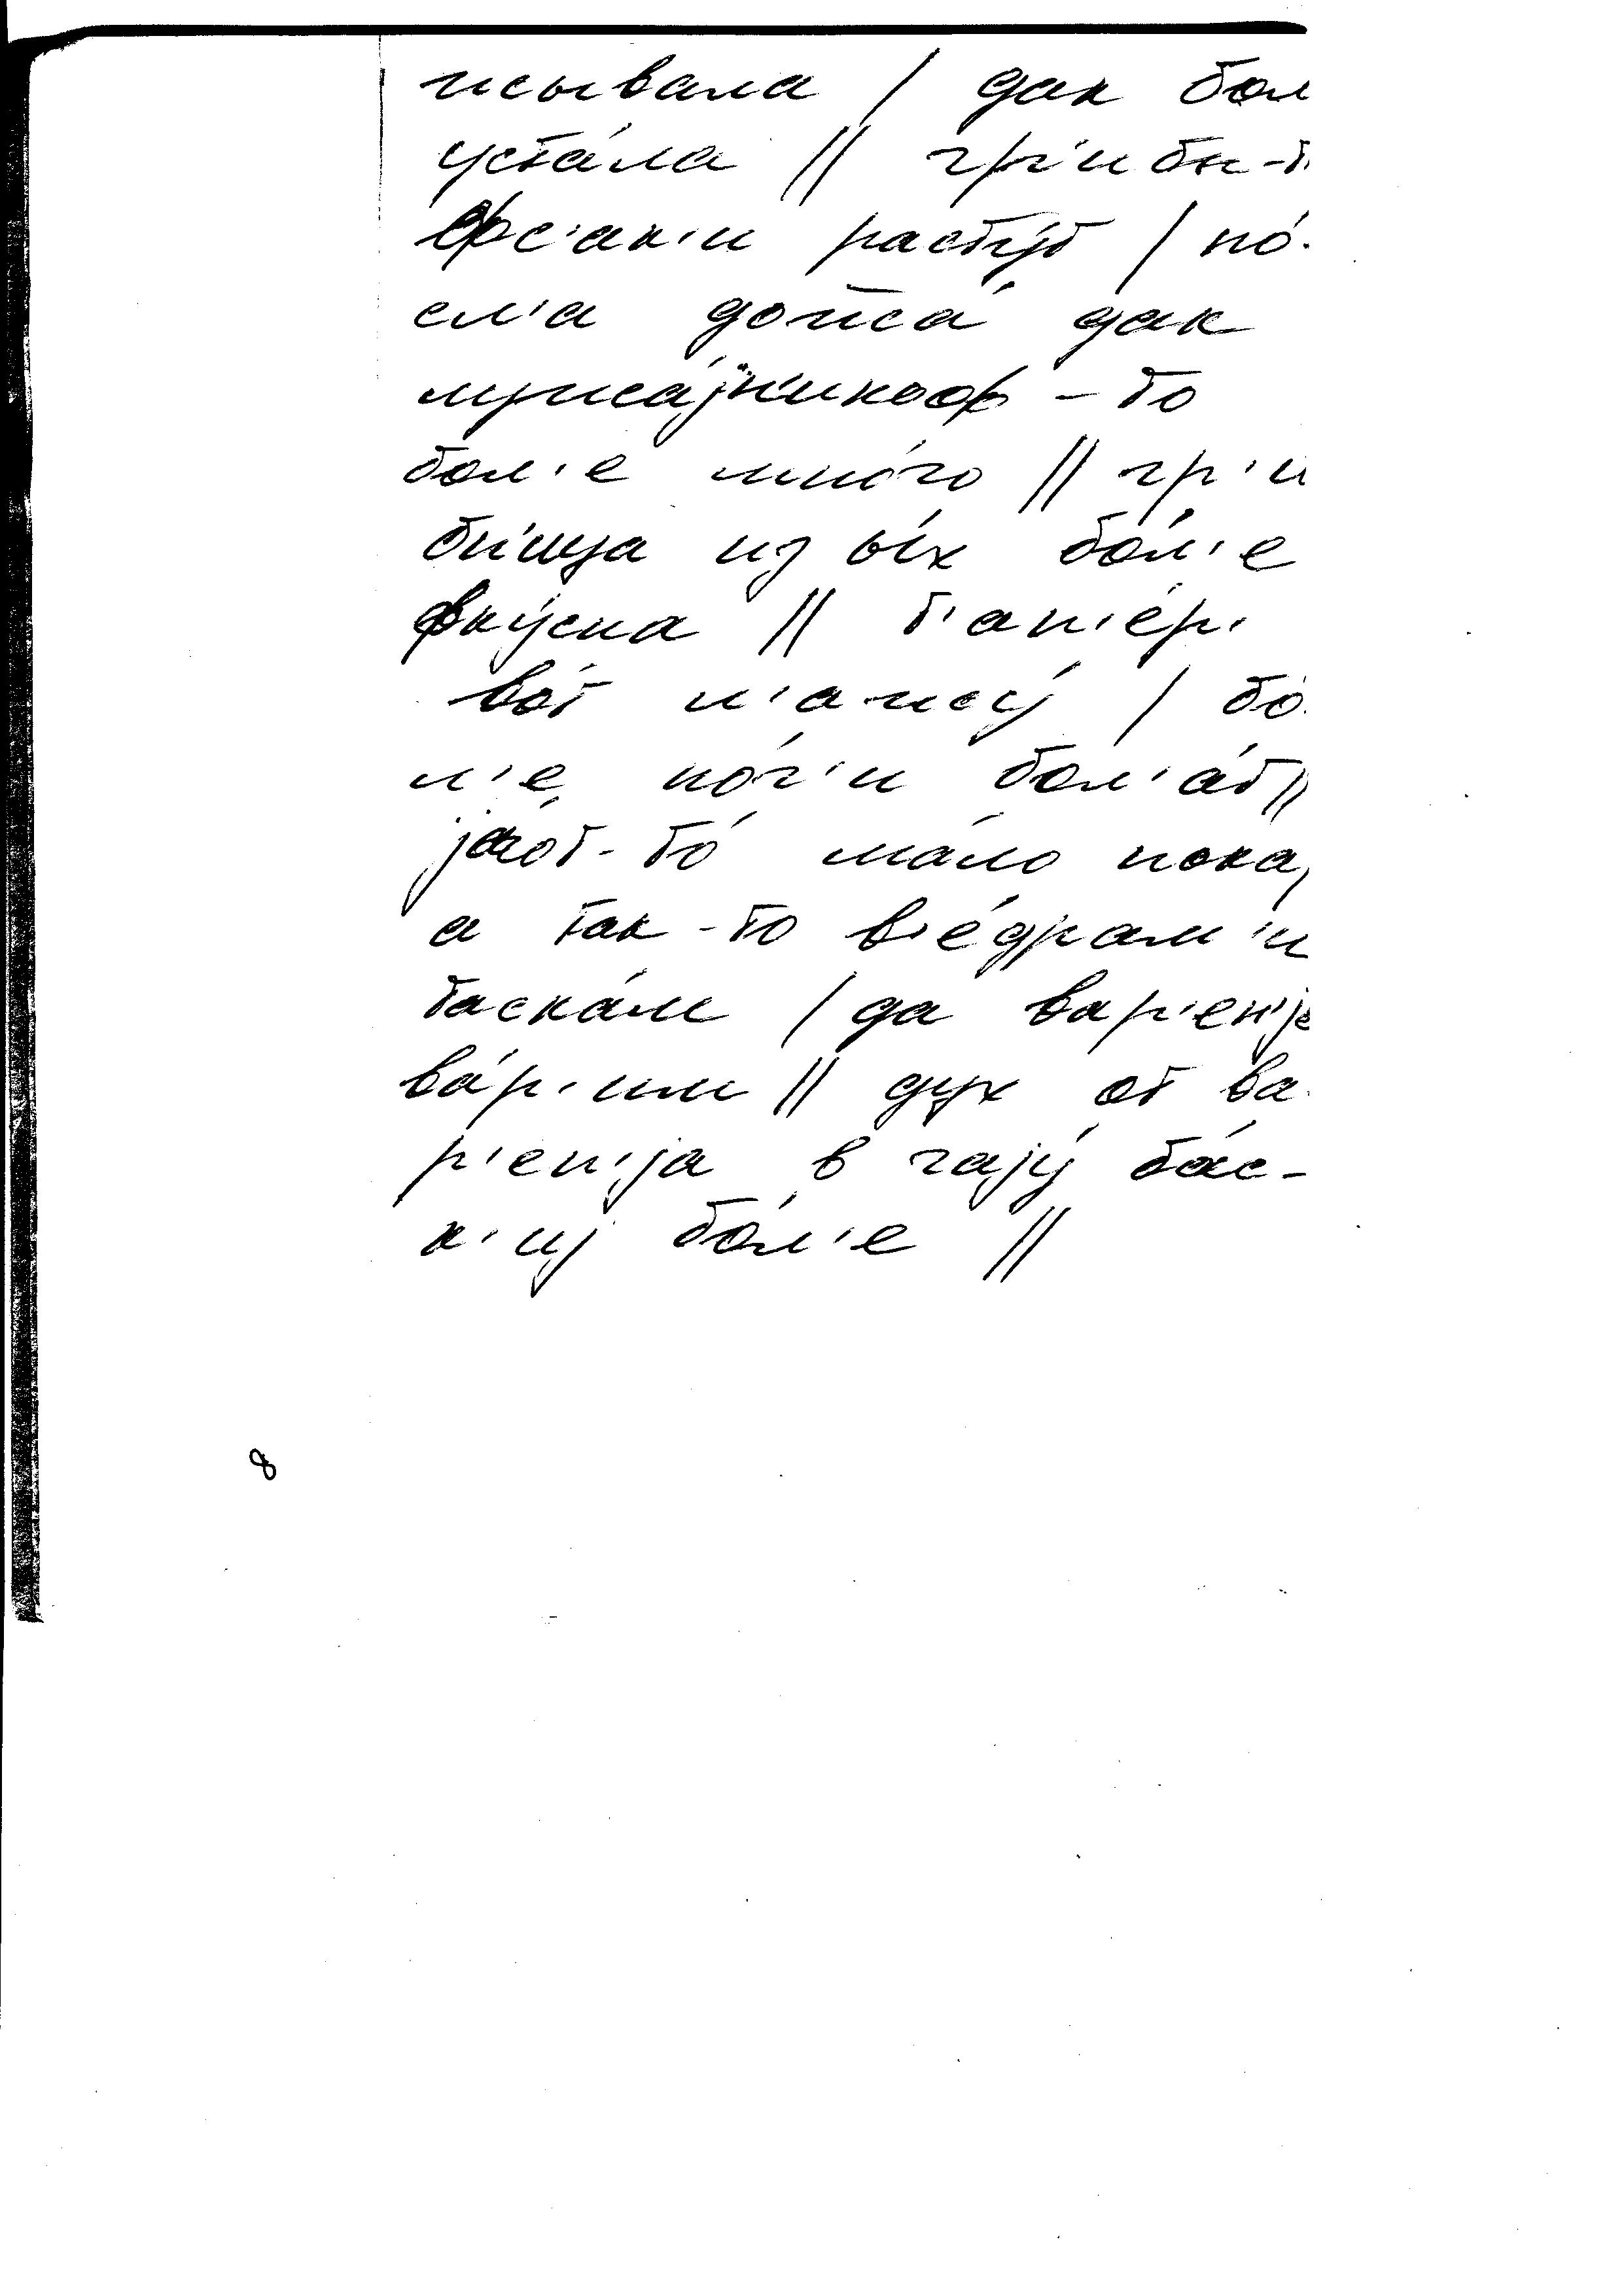 жывала / дак бол
уста́ла // гр'ибы-т
фс'ак'и расту́т / по́
сл'а дожжа́ дак
мул'са́j н'икоф-то
бол'е мно́го // гр'и
бн'и́ца из ых бо́л'е
фку́сна // т'ап'е́р'
во́т л'ажу́ / бо́
л'е но́г'и бол'а́т //
jа́от-то́ ма́ло пока,
а так-то в'е́драм'и
таска́м / да вар'ен'jе
ва́р'им // дух от ва
р'ен'jа в чаjу́ ба́с-
к'иj бо́л'е //
8